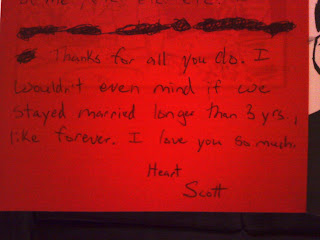 Thanks for all you do. I
wouldn't even mind if we
stayed married longer than 3 yrs,
like forever. I love you so much.
Heart
Scott